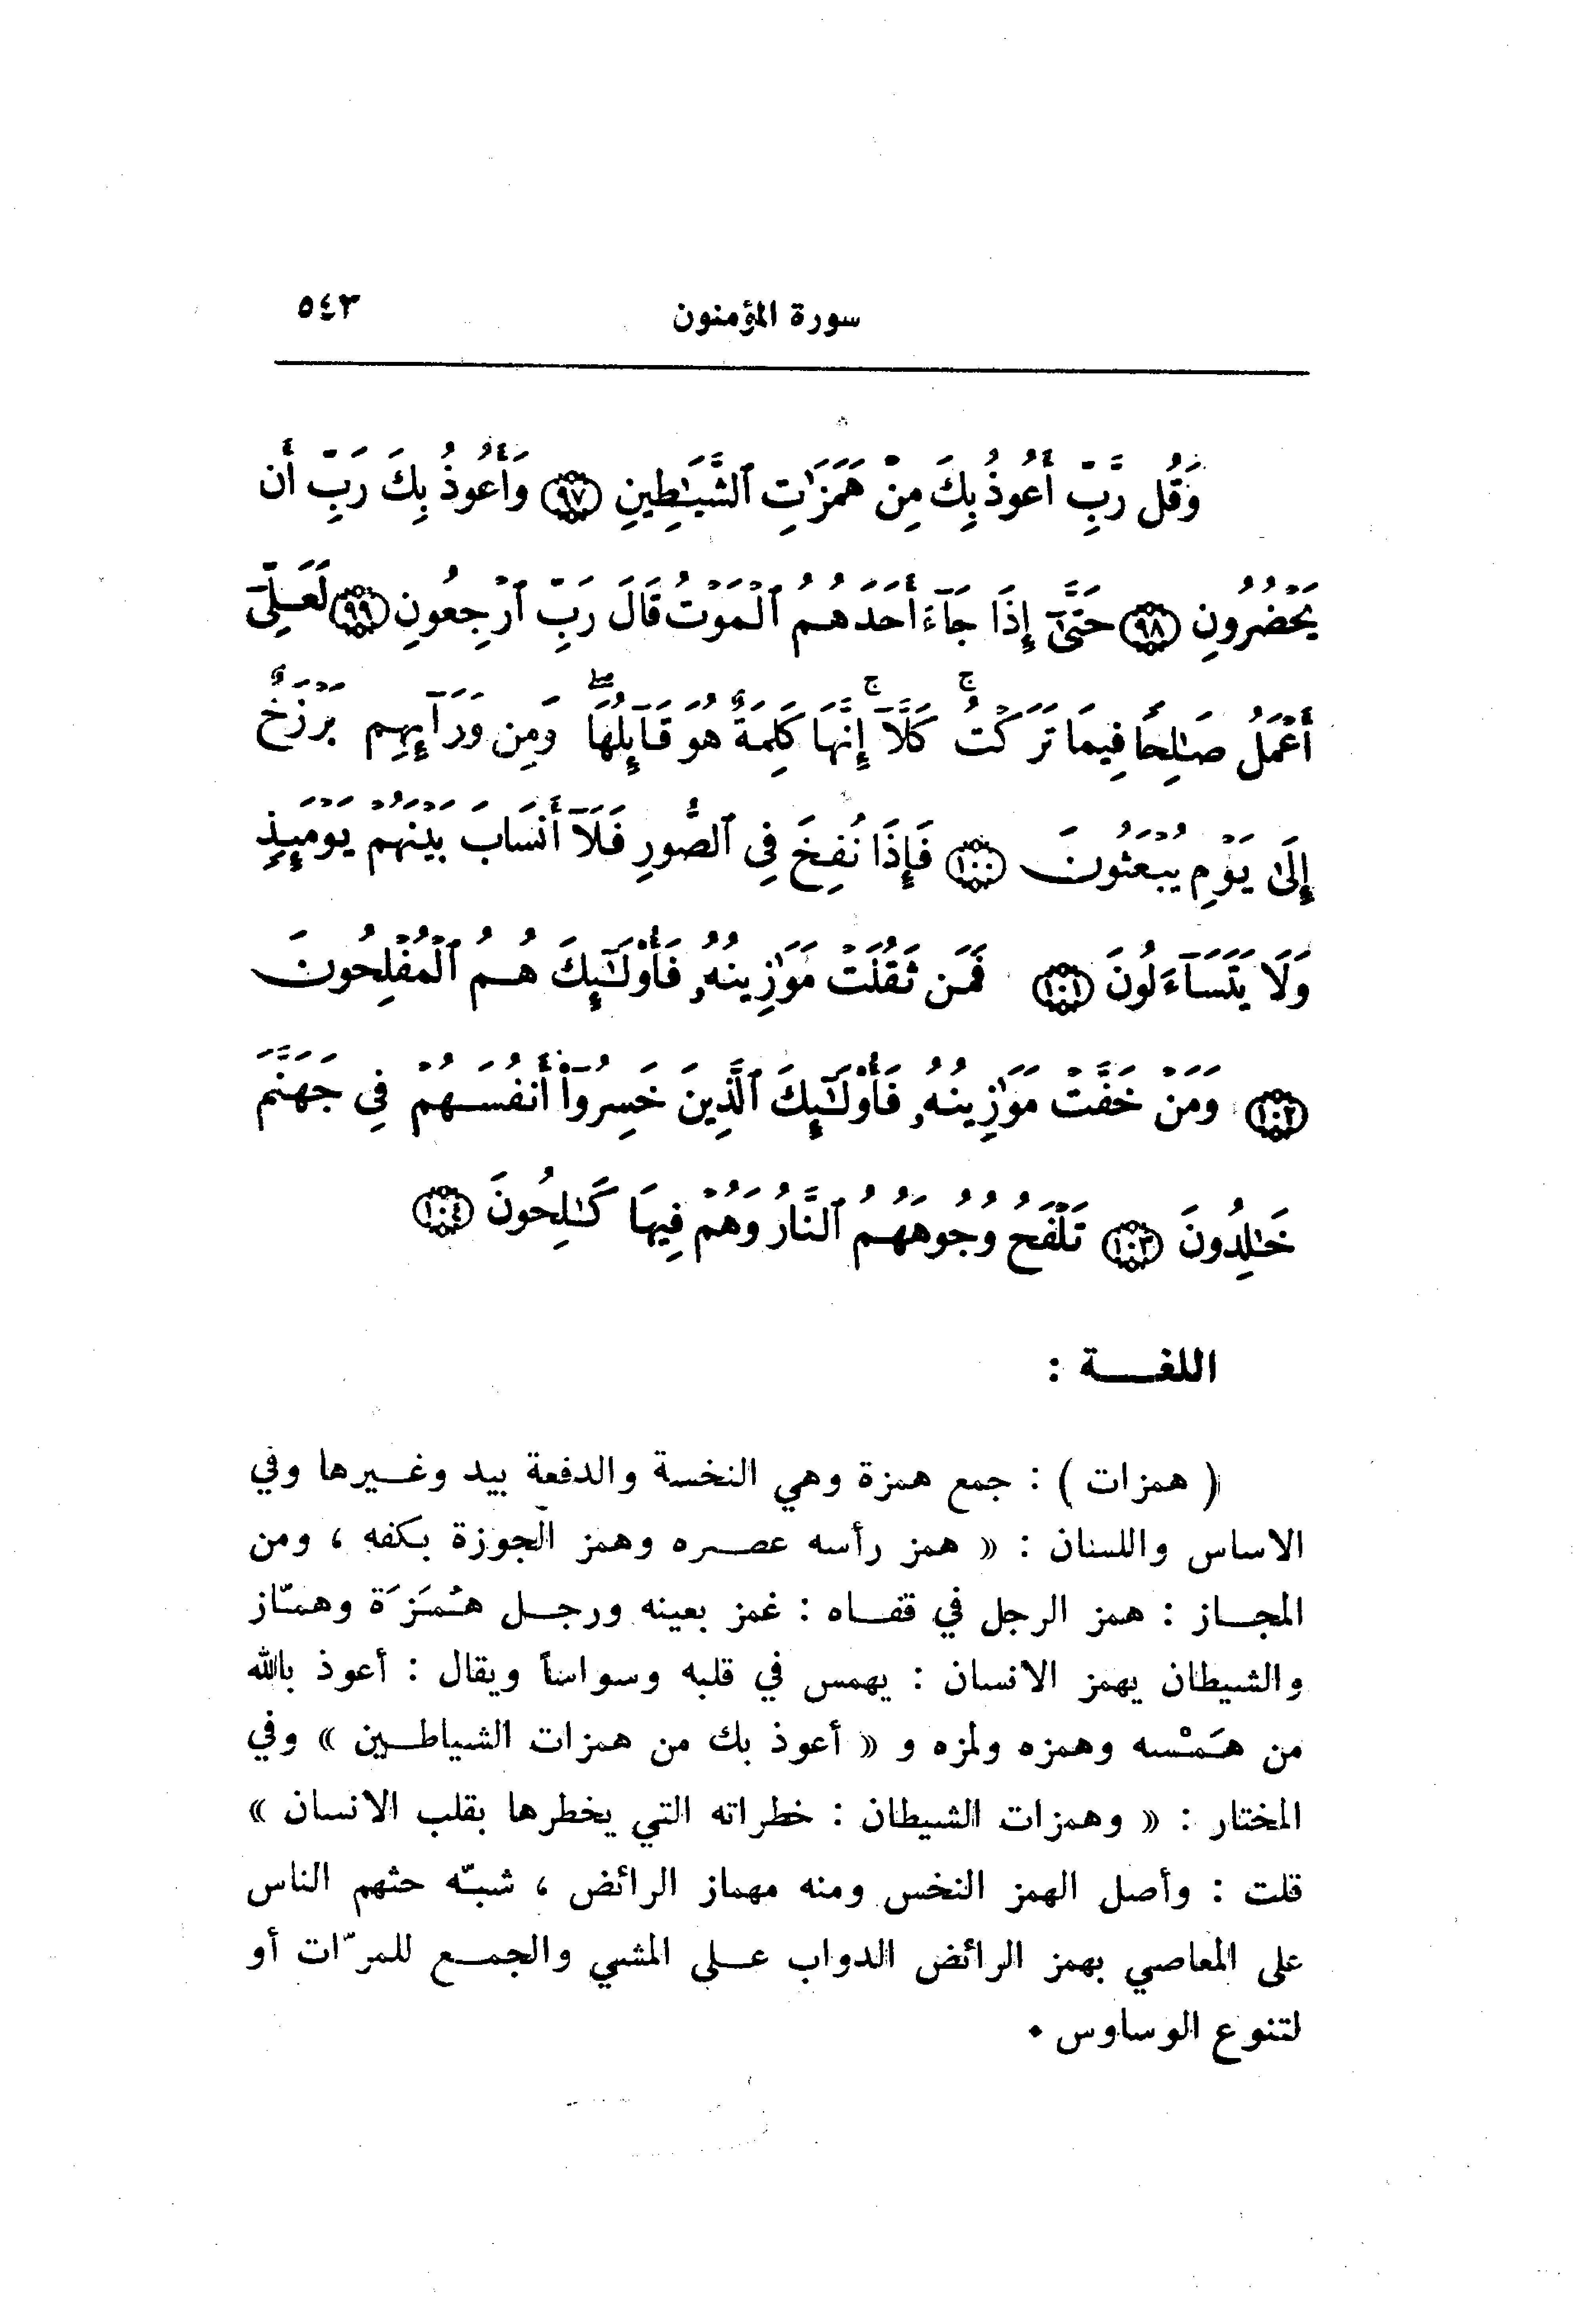 سورة المؤمنون ٥٤٣
وَقُل رَّبِّ أَعُوذُ بِكَ مِنْ هَمَزَٰتِ ٱلشَّيَـٰطِينِ ﴿٩٧﴾ وَأَعُوذُ بِكَ رَبِّ أَن
يَحْضُرُونِ ﴿٩٨﴾ حَتَّىٰٓ إِذَا جَآءَ أَحَدَهُمُ ٱلْمَوْتُ قَالَ رَبِّ ٱرْجِعُونِ ﴿٩٩﴾ لَعَلِّىٓ
أَعْمَلُ صَـٰلِحًا فِيمَا تَرَكْتُ ۚ كَلَّآ ۚ إِنَّهَا كَلِمَةٌ هُوَ قَآئِلُهَا ۖ وَمِن وَرَآئِهِم بَرْزَخٌ
إِلَىٰ يَوْمِ يُبْعَثُونَ ﴿١٠٠﴾ فَإِذَا نُفِخَ فِى ٱلصُّورِ فَلَآ أَنسَابَ بَيْنَهُمْ يَوْمَئِذٍ
وَلَا يَتَسَآءَلُونَ ﴿١٠١﴾ فَمَن ثَقُلَتْ مَوَٰزِينُهُۥ فَأُو۟لَـٰٓئِكَ هُمُ ٱلْمُفْلِحُونَ
﴿١٠٢﴾ وَمَنْ خَفَّتْ مَوَٰزِينُهُۥ فَأُو۟لَـٰٓئِكَ ٱلَّذِينَ خَسِرُوٓا۟ أَنفُسَهُمْ فِى جَهَنَّمَ
خَـٰلِدُونَ ﴿١٠٣﴾ تَلْفَحُ وُجُوهَهُمُ ٱلنَّارُ وَهُمْ فِيهَا كَـٰلِحُونَ ﴿١٠٤﴾
اللغـــــة :
( همزات ) : جمع همزة وهي النخسة والدفعة بيد وغـيرها وفي
الاساس واللسنان : « همز رأسه عصـره وهمز الجوزة بكفه ، ومن
المجـاز : همز الرجل في قفـاه : غمز بعينه ورجـل هـُمَزَة وهمـّاز
والشيطان يهمز الانسان : يهمس في قلبه وسواساً ويقال : أعوذ بالله
من هـَمْسه وهمزه ولمزه و « أعوذ بك من همزات الشياطـين » وفي
المختار : « وهمزات الشيطان : خطراته التي يخطرها بقلب الانسان »
قلت : وأصل الهمز النخس ومنه مهماز الرائض ، شبـّه حثهم الناس
على المعاصي بهمز الرائض الدواب عـلى المشي والجمـع للمرّات أو
لتنوع الوساوس ٠